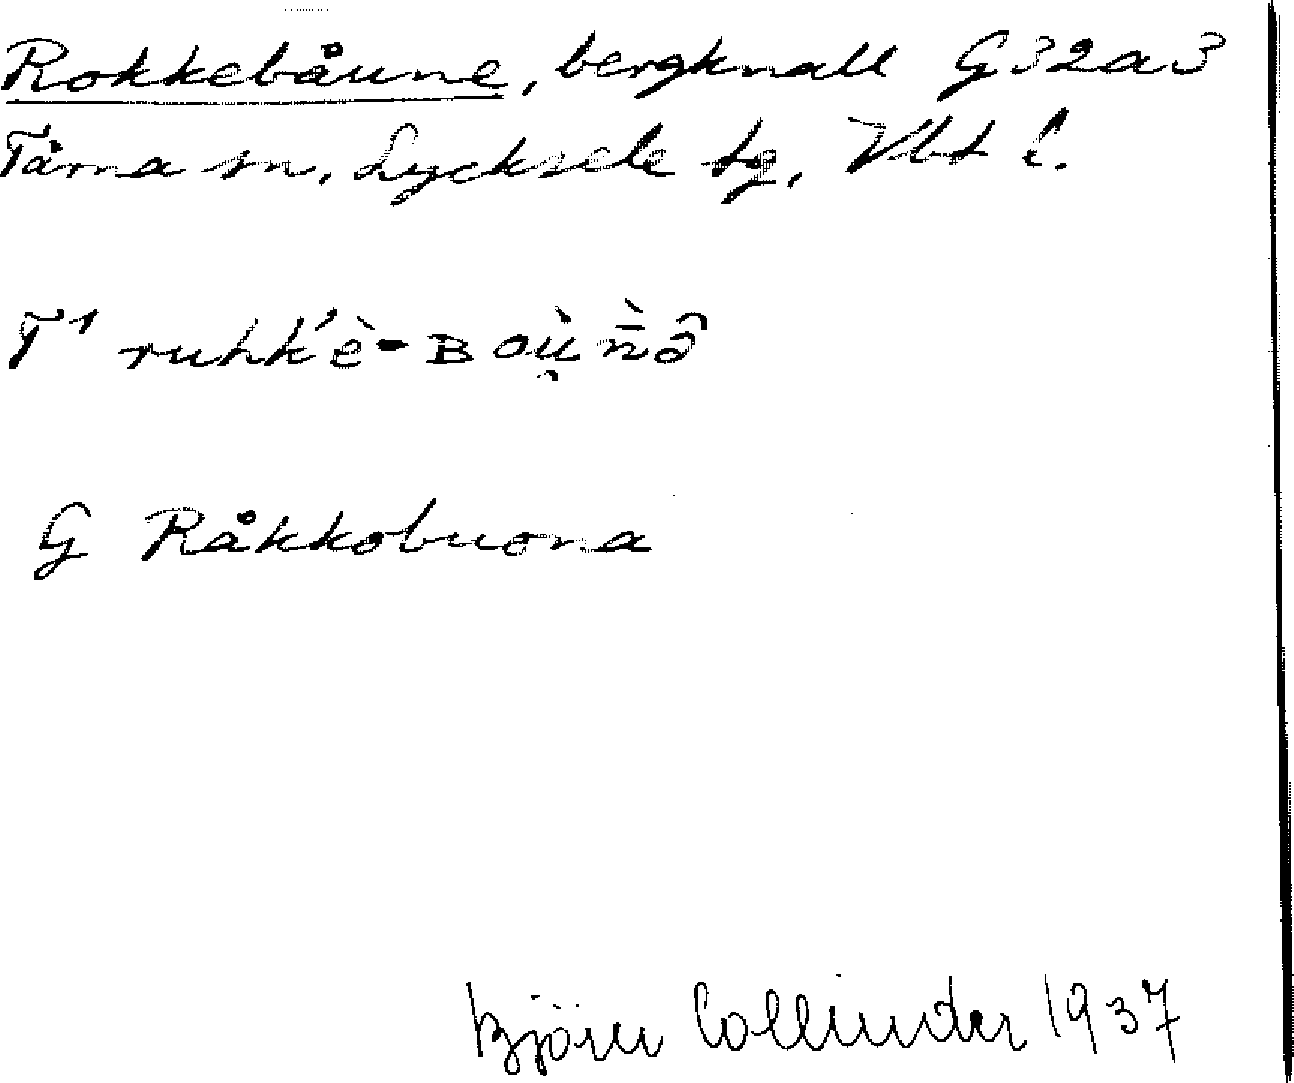 Rokkebåune, bergknall G32a3
Tärna sn, Lycksele tg, Vbt l.
T¹ ruhk'è-ʙoù̯ǹ̄ô
G Råkkobuona
Björn Collinder 1937